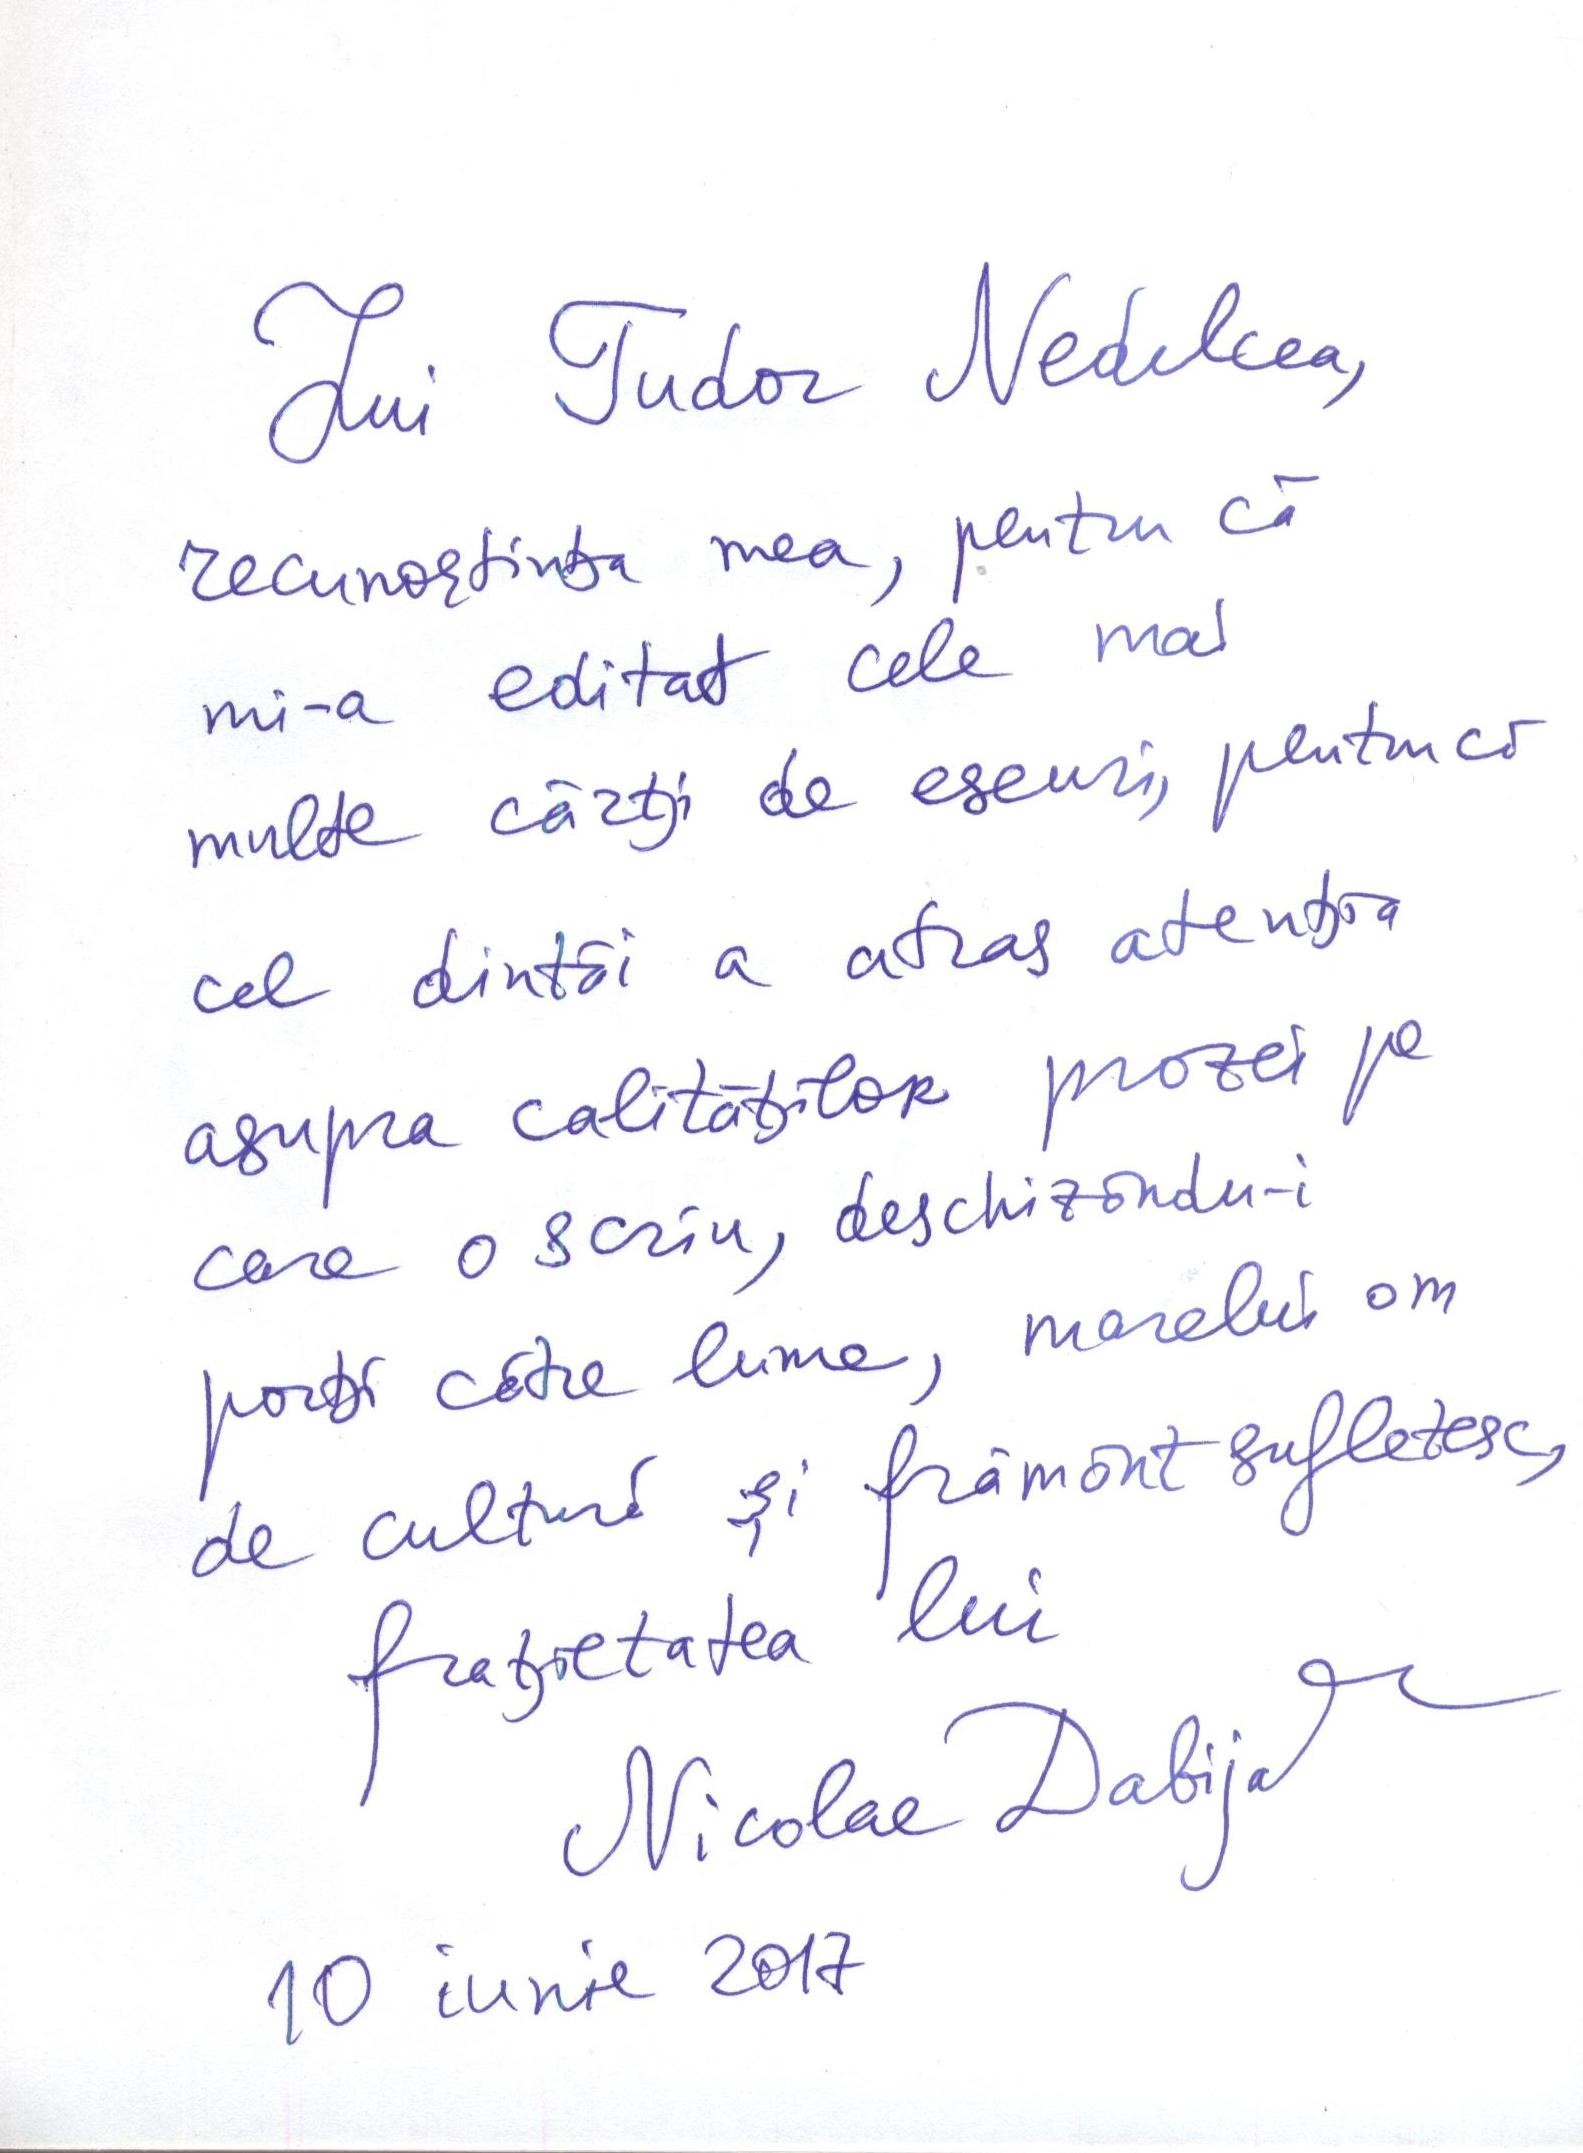 Lui Tudor Nedelcea,
recunoștința mea, pentru că
mi-a editat cele mai
multe cărți de eseuri, pentru că
cel dintâi a atras atenția
asupra calităților prozei pe
care o scriu, deschizându-i
porți către lume, marelui om
de cultură și frământ sufletesc,
frățietatea lui
Nicolae Dabija
10 iunie 2017